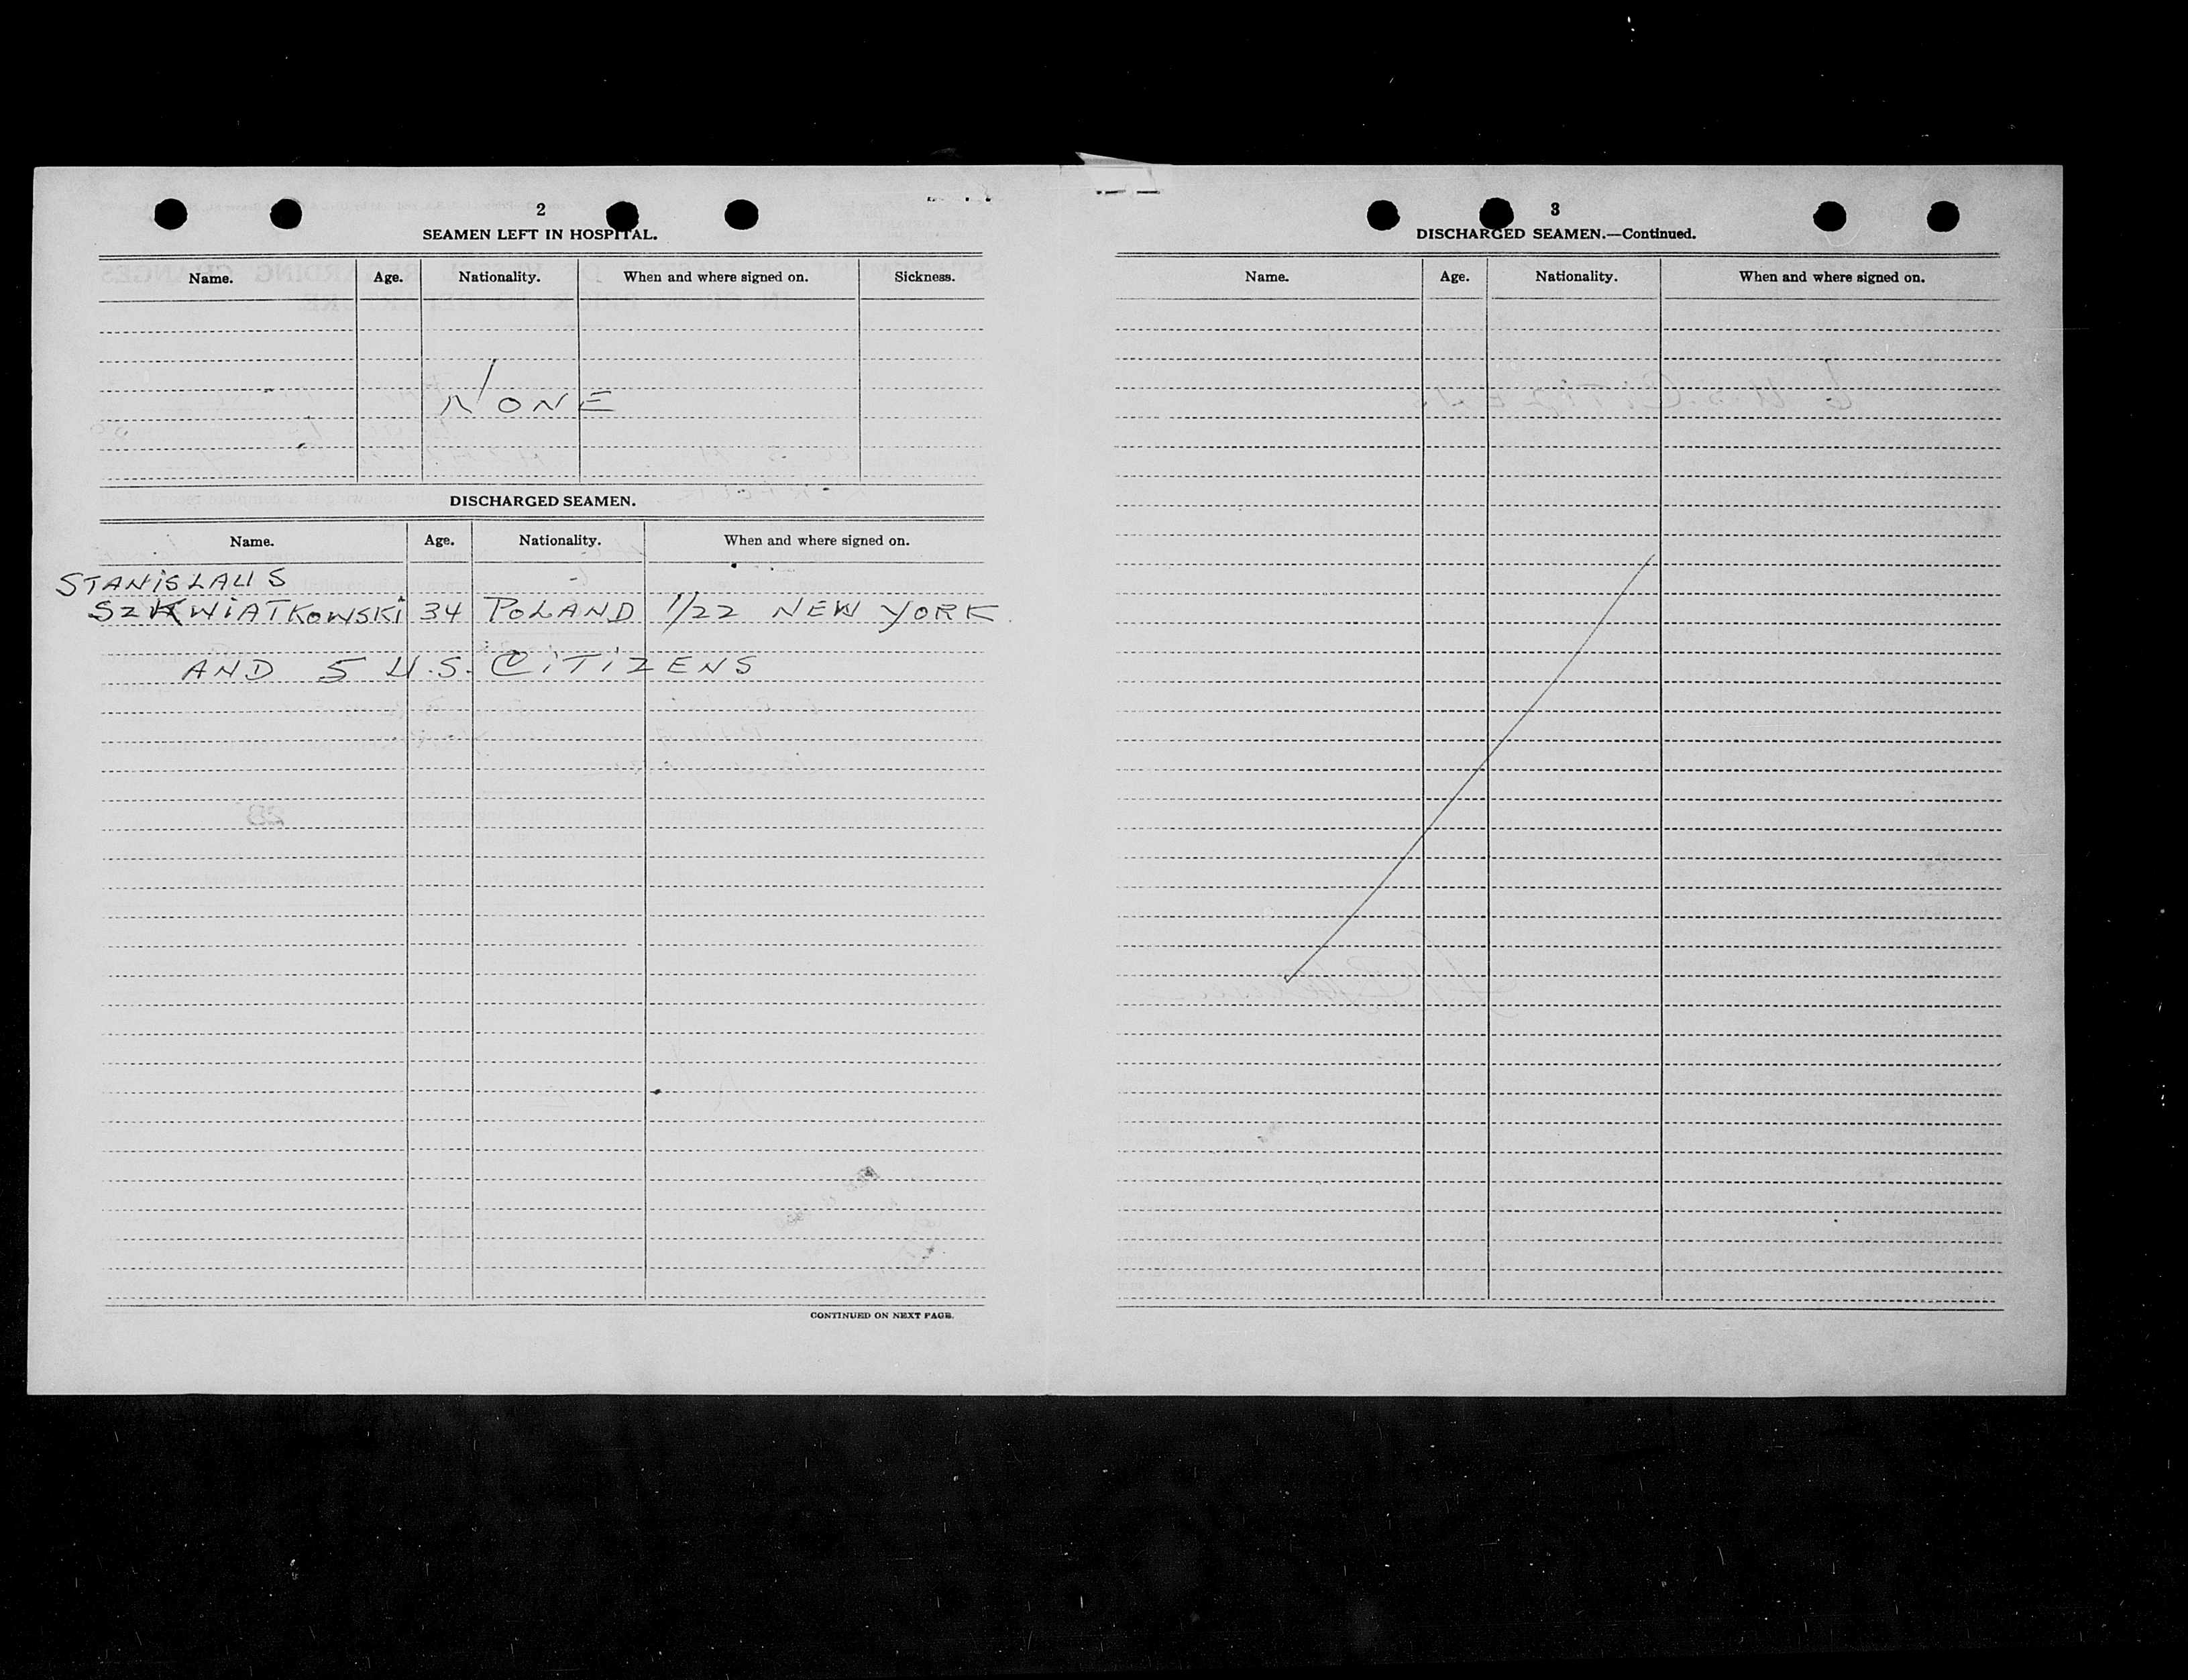 2
SEAMEN LEFT IN HOSPITAL.
Name. Age. Nationality. When and where signed on. Sickness.
NONE
DISCHARGED SEAMEN.
Name. Age. Nationality. When and where signed on.
STANISLAUS
SZKWIATKOWSKI 34 POLAND 1/22 NEW YORK
AND 5 U.S. CITIZENS
CONTINUED ON NEXT PAGE.
3
DISCHARGED SEAMEN.—Continued.
Name. Age. Nationality. When and where signed on.